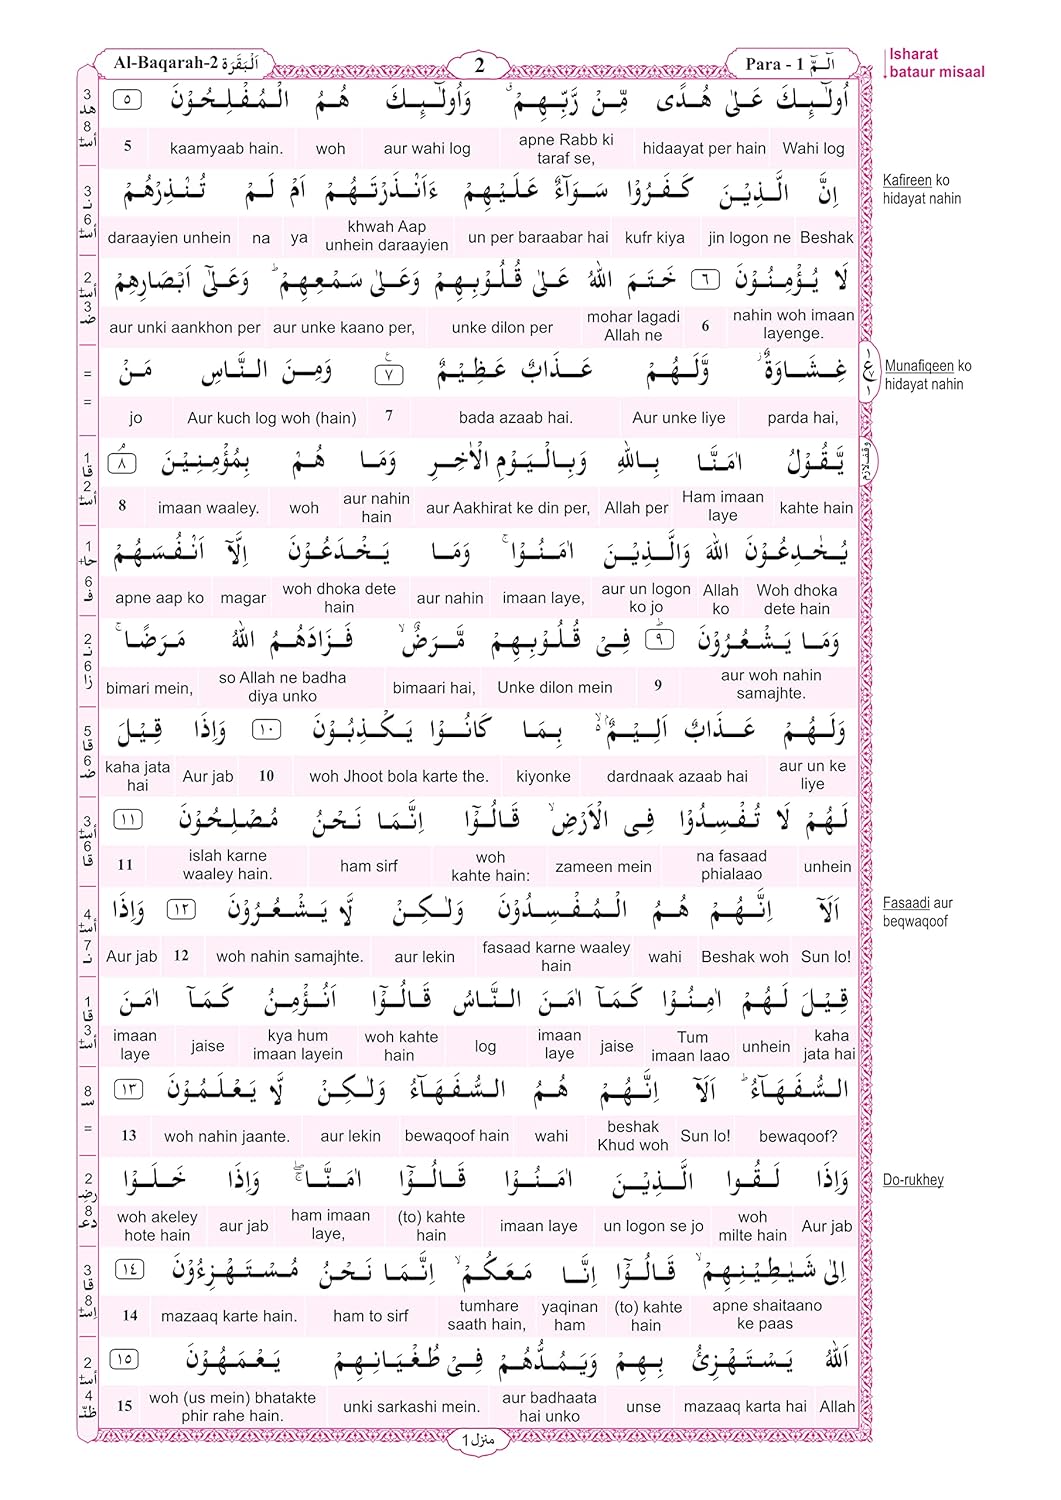 Al-Baqarah-2 اَلْبَقَرَة
2
Para - 1 الٓـمّٓ
Isharat
bataur misaal
اُولٰٓئِكَ عَلٰى هُدًى مِّنْ رَّبِّهِمْ ۗ وَاُولٰٓئِكَ هُمُ الْمُفْلِحُوْنَ ٥
Wahi log hidaayat per hain apne Rabb ki taraf se, aur wahi log woh kaamyaab hain. 5
اِنَّ الَّذِيْنَ كَفَرُوْا سَوَآءٌ عَلَيْهِمْ ءَاَنْذَرْتَهُمْ اَمْ لَمْ تُنْذِرْهُمْ
Kafireen ko
hidayat nahin
Beshak jin logon ne kufr kiya un per baraabar hai khwah Aap unhein daraayien ya na daraayien unhein
لَا يُؤْمِنُوْنَ ٦ خَتَمَ اللّٰهُ عَلٰى قُلُوْبِهِمْ وَعَلٰى سَمْعِهِمْ ۗ وَعَلٰٓى اَبْصَارِهِمْ
nahin woh imaan layenge. 6 mohar lagadi Allah ne unke dilon per aur unke kaano per, aur unki aankhon per
غِشَاوَةٌ ۫ وَّلَهُمْ عَذَابٌ عَظِيْمٌ ٧ وَمِنَ النَّاسِ مَنْ
Munafiqeen ko
hidayat nahin
parda hai, Aur unke liye bada azaab hai. 7 Aur kuch log woh (hain) jo
يَّقُوْلُ اٰمَنَّا بِاللّٰهِ وَبِالْيَوْمِ الْاٰخِرِ وَمَا هُمْ بِمُؤْمِنِيْنَ ٨
kahte hain Ham imaan laye Allah per aur Aakhirat ke din per, aur nahin hain woh imaan waaley. 8
يُخٰدِعُوْنَ اللّٰهَ وَالَّذِيْنَ اٰمَنُوْا ۚ وَمَا يَخْدَعُوْنَ اِلَّآ اَنْفُسَهُمْ
Woh dhoka dete hain Allah ko aur un logon ko jo imaan laye, aur nahin woh dhoka dete hain magar apne aap ko
وَمَا يَشْعُرُوْنَ ٩ فِيْ قُلُوْبِهِمْ مَّرَضٌ ۙ فَزَادَهُمُ اللّٰهُ مَرَضًا ۚ
aur woh nahin samajhte. 9 Unke dilon mein bimaari hai, so Allah ne badha diya unko bimari mein,
وَلَهُمْ عَذَابٌ اَلِيْمٌ ۢ ۙ بِمَا كَانُوْا يَكْذِبُوْنَ ١٠ وَاِذَا قِيْلَ
aur un ke liye dardnaak azaab hai kiyonke woh Jhoot bola karte the. 10 Aur jab kaha jata hai
لَهُمْ لَا تُفْسِدُوْا فِى الْاَرْضِ ۙ قَالُوْٓا اِنَّمَا نَحْنُ مُصْلِحُوْنَ ١١
unhein na fasaad phialaao zameen mein woh kahte hain: ham sirf islah karne waaley hain. 11
اَلَآ اِنَّهُمْ هُمُ الْمُفْسِدُوْنَ وَلٰكِنْ لَّا يَشْعُرُوْنَ ١٢ وَاِذَا
Fasaadi aur
beqwaqoof
Sun lo! Beshak woh wahi fasaad karne waaley hain aur lekin woh nahin samajhte. 12 Aur jab
قِيْلَ لَهُمْ اٰمِنُوْا كَمَآ اٰمَنَ النَّاسُ قَالُوْٓا اَنُؤْمِنُ كَمَآ اٰمَنَ
kaha jata hai unhein Tum imaan laao jaise imaan laye log woh kahte hain kya hum imaan layein jaise imaan laye
السُّفَهَآءُ ۗ اَلَآ اِنَّهُمْ هُمُ السُّفَهَآءُ وَلٰكِنْ لَّا يَعْلَمُوْنَ ١٣
bewaqoof? Sun lo! beshak Khud woh wahi bewaqoof hain aur lekin woh nahin jaante. 13
وَاِذَا لَقُوا الَّذِيْنَ اٰمَنُوْا قَالُوْٓا اٰمَنَّا ۚ وَاِذَا خَلَوْا
Do-rukhey
Aur jab woh milte hain un logon se jo imaan laye (to) kahte hain ham imaan laye, aur jab woh akeley hote hain
اِلٰى شَيٰطِيْنِهِمْ ۙ قَالُوْٓا اِنَّا مَعَكُمْ ۙ اِنَّمَا نَحْنُ مُسْتَهْزِءُوْنَ ١٤
apne shaitaano ke paas (to) kahte hain yaqinan ham tumhare saath hain, ham to sirf mazaaq karte hain. 14
اَللّٰهُ يَسْتَهْزِئُ بِهِمْ وَيَمُدُّهُمْ فِيْ طُغْيَانِهِمْ يَعْمَهُوْنَ ١٥
Allah mazaaq karta hai unse aur badhaata hai unko unki sarkashi mein. woh (us mein) bhatakte phir rahe hain. 15
منزل 1